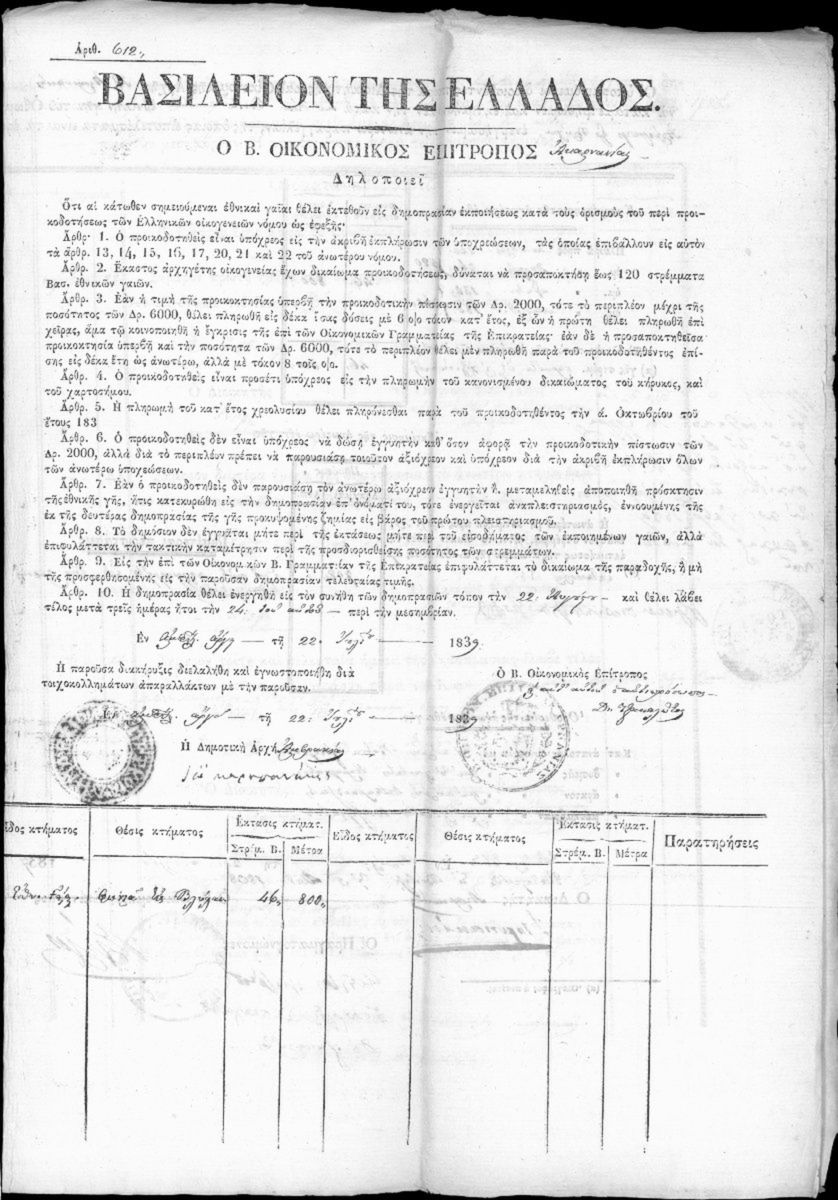 Ἀριθ. 612.
ΒΑΣΙΛΕΙΟΝ ΤΗΣ ΕΛΛΑΔΟΣ.
Ο Β. ΟΙΚΟΝΟΜΙΚΟΣ ΕΠΙΤΡΟΠΟΣ Ἀκαρνανίας
Δηλοποιεῖ
Ὅτι αἱ κάτωθεν σημειούμεναι ἐθνικαὶ γαῖαι θέλει ἐκτεθοῦν εἰς δημοπρασίαν ἐκποιήσεως κατὰ τοὺς ὁρισμοὺς τοῦ περὶ προι-
κοδοτήσεως τῶν Ἑλληνικῶν οἰκογενειῶν νόμου ὡς ἐφεξῆς·
Ἄρθρ· 1. Ὁ προικοδοτηθεὶς εἶναι ὑπόχρεος εἰς τὴν ἀκριβῆ ἐκπλήρωσιν τῶν ὑποχρεώσεων, τὰς ὁποίας ἐπιβάλλουν εἰς αὐτὸν
τὰ ἄρθρ. 13, 14, 15, 16, 17, 20, 21 καὶ 22 τοῦ ἀνωτέρου νόμου.
Ἄρθρ. 2. Ἕκαστος ἀρχηγέτης οἰκογενείας ἔχων δικαίωμα προικοδοτήσεως, δύναται νὰ προσαποκτήσῃ ἕως 120 στρέμματα
Βασ. ἐθνικῶν γαιῶν.
Ἄρθρ. 3. Ἐὰν ἡ τιμὴ τῆς προικοκτησίας ὑπερβῇ τὴν προικοδοτικὴν πίστωσιν τῶν Δρ. 2000, τότε τὸ περιπλέον μέχρι τῆς
ποσότητος τῶν Δρ. 6000, θέλει πληρωθῆ εἰς δέκα ἴσας δόσεις μὲ 6 ο)ο τόκον κατ᾽ ἔτος, ἐξ ὧν ἡ πρώτη θέλει πληρωθῆ ἐπὶ
χεῖρας, ἅμα τῷ κοινοποιηθῇ ἡ ἔγκρισις τῆς ἐπὶ τῶν Οἰκονομικῶν Γραμματείας τῆς Ἐπικρατείας· ἐὰν δὲ ἡ προσαποκτηθεῖσα
προικοκτησία ὑπερβῇ καὶ τὴν ποσότητα τῶν Δρ. 6000, τότε τὸ περιπλέον θέλει μὲν πληρωθῆ παρὰ τοῦ προικοδοτηθέντος ἐπί-
σης εἰς δέκα ἔτη ὡς ἀνωτέρω, ἀλλὰ μὲ τόκον 8 τοῖς ο)ο.
Ἄρθρ. 4. Ὁ προικοδοτηθεὶς εἶναι προσέτι ὑπόχρεος εἰς τὴν πληρωμὴν τοῦ κανονισμένου δικαιώματος τοῦ κήρυκος, καὶ
τοῦ χαρτοσήμου.
Ἄρθρ. 5. Ἡ πληρωμὴ τοῦ κατ᾽ ἔτος χρεολυσίου θέλει πληρόνεσθαι παρὰ τοῦ προικοδοτηθέντος τὴν ά. Ὀκτωβρίου τοῦ
ἔτους 183
Ἄρθρ. 6. Ὁ προικοδοτηθεὶς δὲν εἶναι ὑπόχρεος νὰ δώσῃ ἐγγυητὴν καθ᾽ ὅσον ἀφορᾷ τὴν προικοδοτικὴν πίστωσιν τῶν
Δρ. 2000, ἀλλὰ διὰ τὸ περιπλέον πρέπει νὰ παρουσιάσῃ τοιοῦτον ἀξιόχρεον καὶ ὑπόχρεον διὰ τὴν ἀκριβῆ ἐκπλήρωσιν ὅλων
τῶν ἀνωτέρω ὑποχεώσεων.
Ἄρθρ. 7. Ἐὰν ὁ προικοδοτηθεὶς δὲν παρουσιάσῃ τὸν ἀνωτέρω ἀξιόχρεον ἐγγυητὴν ἢ. μεταμεληθεὶς ἀποποιηθῇ πρόσκτησιν
τῆς ἐθνικῆς γῆς, ἥτις κατεκυρώθη εἰς τὴν δημοπρασίαν ἐπ᾽ ὀνόματί του, τότε ἐνεργεῖται ἀναπλειστηριασμὸς, ἐνιουμένης τῆς
ἐκ τῆς δευτέρας δημοπρασίας τῆς γῆς προκυψομένης ζημίας εἰς βάρος τοῦ πρώτου πλειστηριασμοῦ.
Ἄρθρ. 8. Τὸ δημόσιον δὲν ἐγγυᾶται μήτε περὶ τῆς ἐκτάσεως μήτε περὶ τοῦ εἰσοδήματος τῶν ἐκποιημένων γαιῶν, ἀλλὰ
ἐπιφυλάττεται τὴν τακτικὴν καταμέτρησιν περὶ τῆς προσδιορισθείσης ποσότητος τῶν στρεμμάτων.
Ἄρθρ. 9. Εἰς τὴν ἐπὶ τῶν Οἰκονομικῶν Β. Γραμματείαν τῆς Ἐπικρατείας ἐπιφυλάττεται τὸ δικαίωμα τῆς παραδοχῆς, ἢ μὴ
τῆς προσφερθησομένης εἰς τὴν παροῦσαν δημοπρασίαν τελευταίας τιμῆς.
Ἄρθρ. 10. Ἡ δημοπρασία θέλει ἐνεργηθῆ εἰς τὸν συνήθη τῶν δημοπρασιῶν τόπον τὴν 22. Αὐγούσ. καὶ θέλει λάβει
τέλος μετὰ τρεῖς ἡμέρας ἤτοι τὴν 24. τοῦ αὐτοῦ περὶ τὴν μεσημβρίαν.
Ἐν τῇ 22. Ἰουλίου 1839
Ἡ παροῦσα διακήρυξις διελαλήθη καὶ ἐγνωστοποιήθη διὰ
τοιχοκολλημάτων ἀπαραλλάκτων μὲ τὴν παροῦσαν.
Ὁ Β. Οἰκονομικὸς Ἐπίτροπος
Ἐν τῇ 22. Ἰουλίου 1839
Ἡ Δημοτικὴ Ἀρχὴ
Εἶδος κτήματος Θέσις κτήματος Ἔκτασις κτήματ. Εἶδος κτήματος Θέσις κτήματος Ἔκτασις κτήματ. Παρατηρήσεις
Στρέμ. Β. Μέτρα Στρέμ. Β. Μέτρα
46, 800,